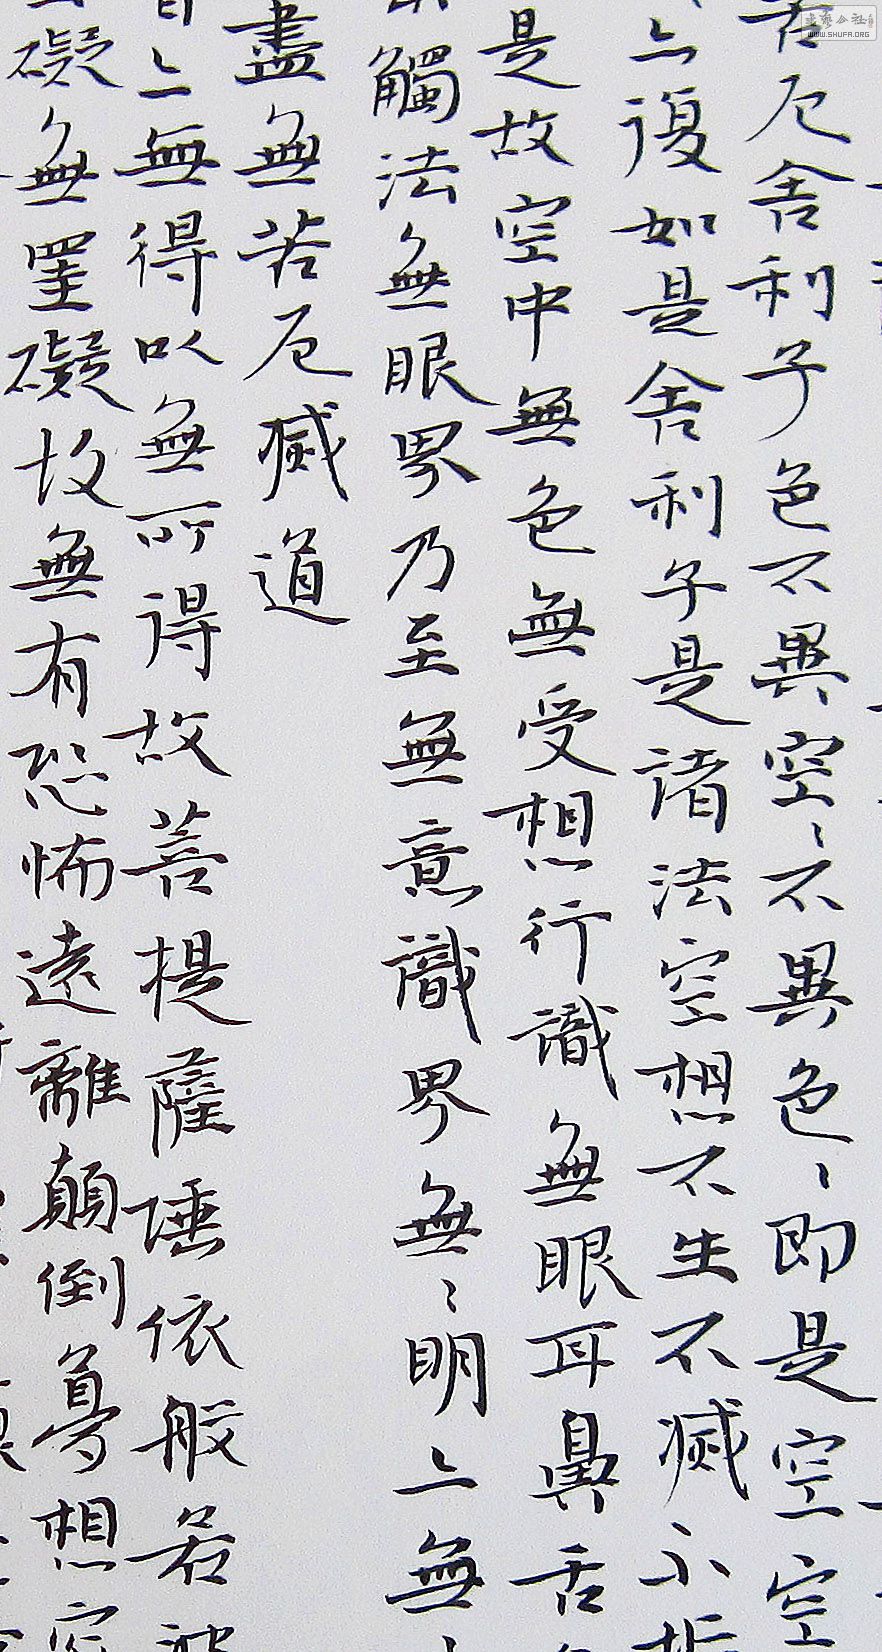 苦厄舍利子色不異空〻不異色〻即是空空
亦復如是舍利子是諸法空想不生不滅不垢
是故空中無色無受想行識無眼耳鼻舌
觸法無眼界乃至無意識界無〻明亦無
盡無苦厄滅道
亦無得以無所得故菩提薩埵依般若波
礙無罣礙故無有恐怖遠離顛倒夢想究
WWW.SHUFA.ORG